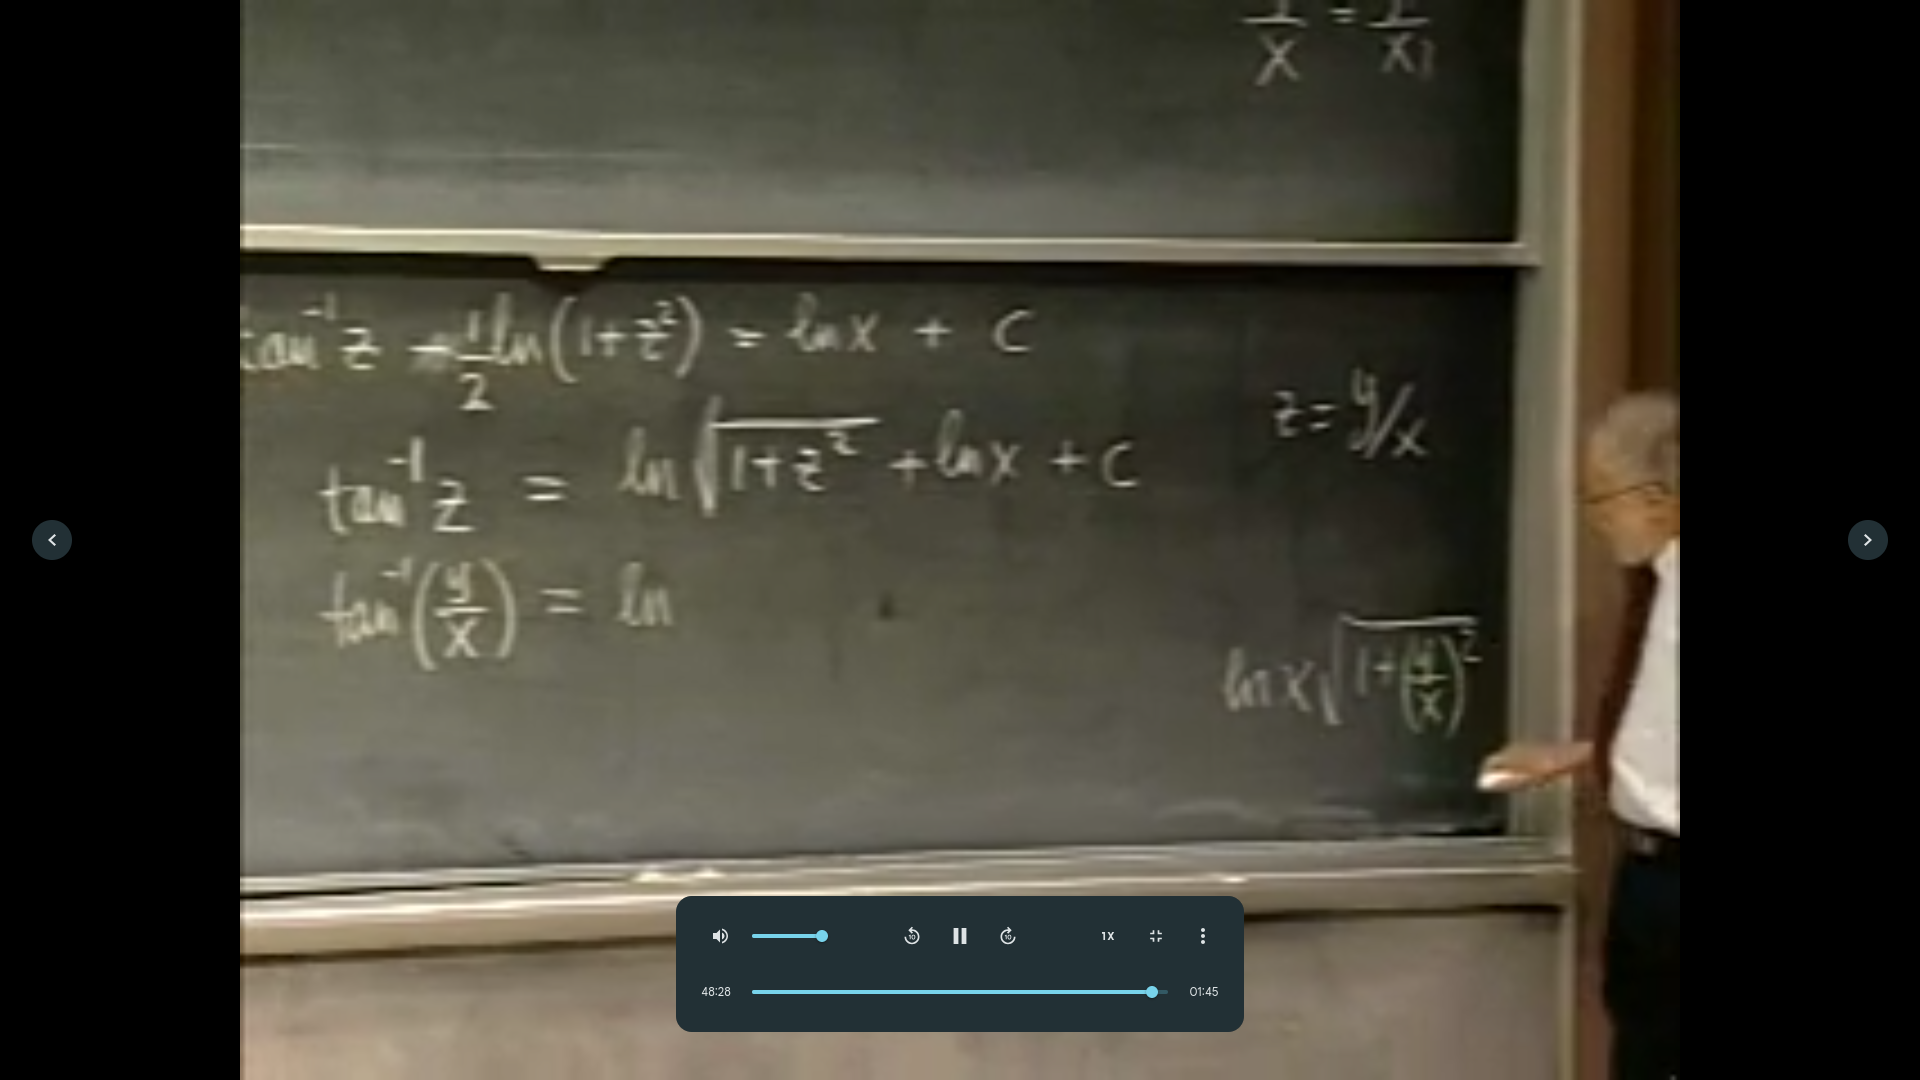 1/x = 1/x₁
tan⁻¹ z - 1/2 ln(1+z²) = ln x + c
z = y/x
tan⁻¹ z = ln √(1+z²) + ln x + c
tan⁻¹(y/x) = ln
ln x √(1+(y/x)²)
10
10
1X
48:28
01:45